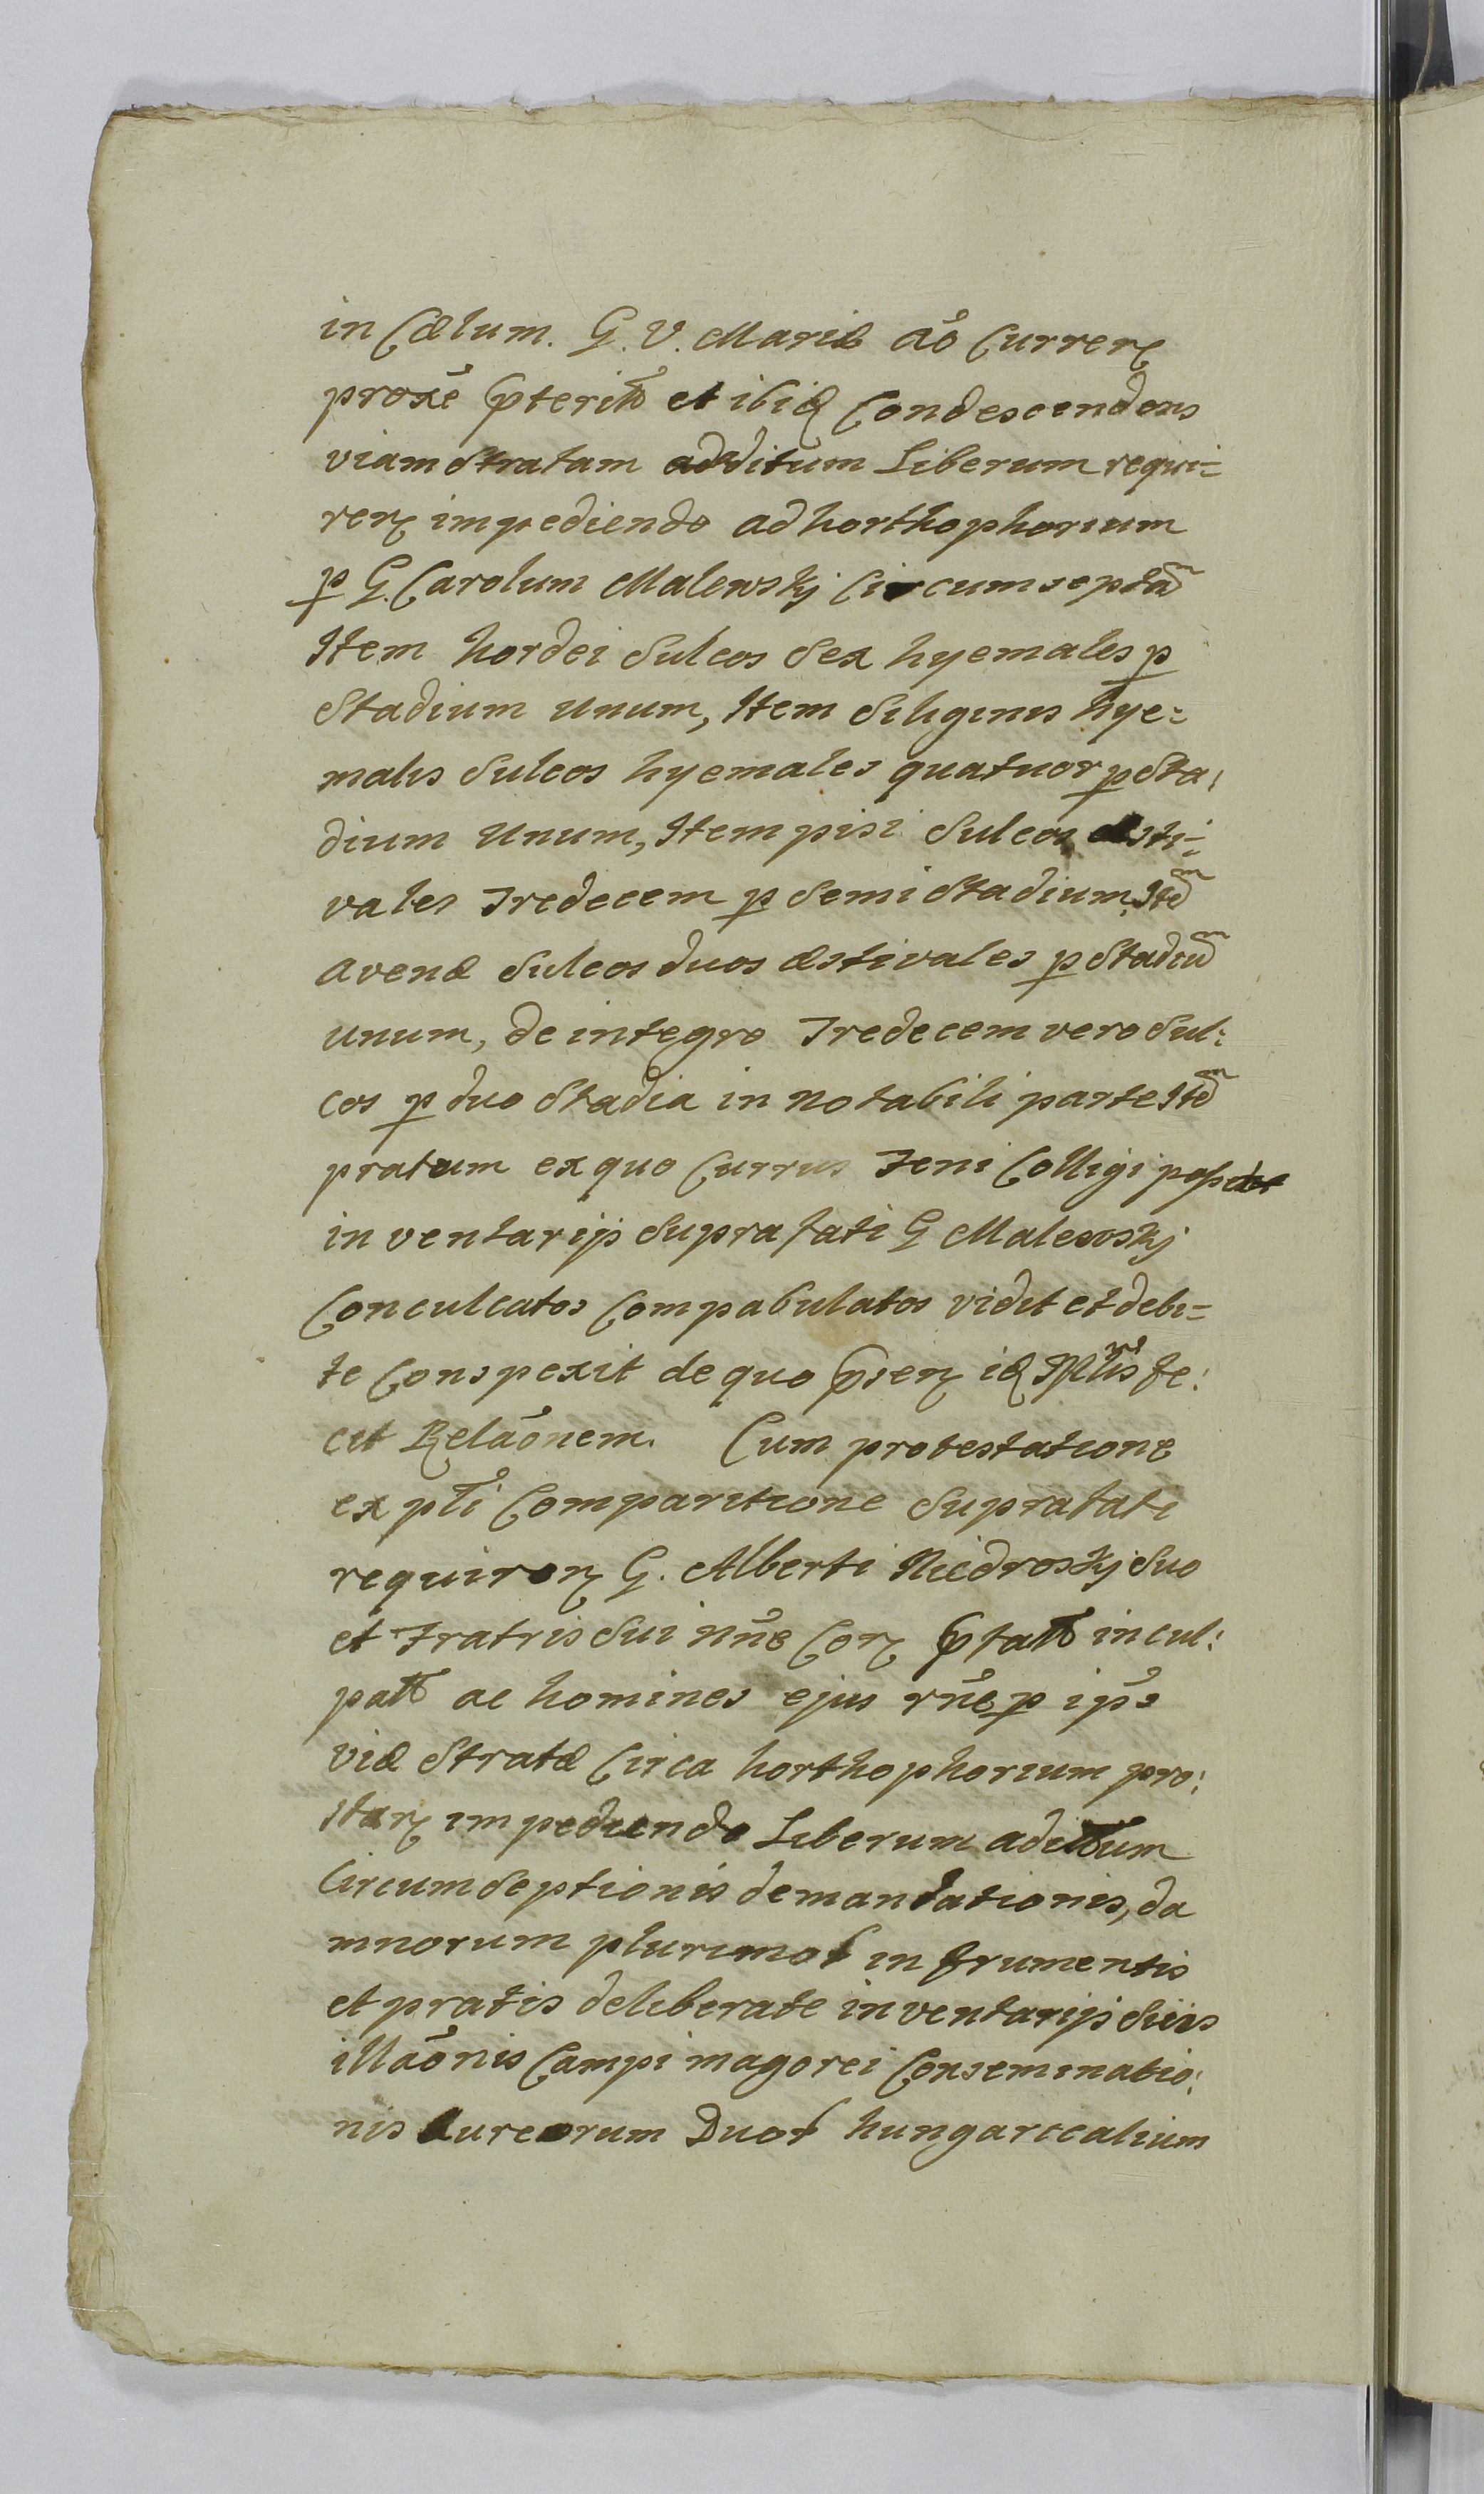 in Cælum. G. V. Mariæ ao̊ Curreñ
proxe ꝑterito et ibiđ Condescendens
viam Stratam additum Liberum requi=
reñ impediendo ad horthophorium
ꝑ G. Carolum Malewskj Circumsepta͠
Item hordei Sulcos Sex hyemales ꝑ
Stadium unum, Item Siliginis hye=
malis Sulcos hyemales quatuor ꝑ Sta,
dium unum, Item pisi Sulcos æsti=
vales Tredecem ꝑ Semi Stadium, Ite͠
avenæ Sulcos duos æstivales ꝑ Stadiu͠
unum, de integro Tredecem vero Sul:
cos ꝑ duo Stadia in notabili parte Ite͠
pratum ex quo Currus Feni Colligi posset
in ventarijs Supra fati G Malewskj
Conculcatos Compabulatos vidit et debi=
te Conspexit de quo ꝑseñ iđ fe:
cit Relaonem. Cum protestatione
ex pti Comparitione Suprafati
requireñ G. Alberti Niedroskj Suo
et Fratris Sui nne Coñ ꝑfatt incul:
patt ac homines ejus rne ꝑ ips
viæ Stratæ Circa horthophorium pro:
stañ impediendo Liberum adittum
Circumseptionis demandationis, da
mnorum plurimoꝝ in frumentis
et pratis deliberate in ventarijs Suis
illaonis Campi magorei Conseminatio:
nis Aureorum Duoꝝ hungaricalium